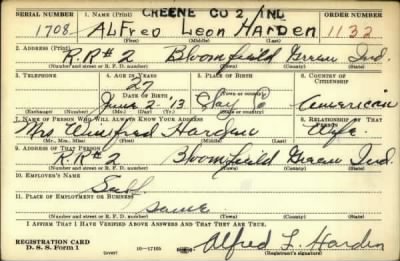 GREENE CO 2 IND
SERIAL NUMBER 1. NAME (Print) ORDER NUMBER
1708 ALFred Leon HArden 1132
(First) (Middle) (Last)
2. ADDRESS (Print)
R.R.# 2 Bloomfield Green Ind.
(Number and street or R. F. D. number) (Town) (County) (State)
3. TELEPHONE 4. AGE IN YEARS 5. PLACE OF BIRTH 6. COUNTRY OF CITIZENSHIP
27
DATE OF BIRTH (Town or county)
June 2 '13 Clay Co American
(Exchange) (Number) (Mo.) (Day) (Yr.) (State or country)
7. NAME OF PERSON WHO WILL ALWAYS KNOW YOUR ADDRESS 8. RELATIONSHIP OF THAT PERSON
Mrs Winifred Harden Wife
(Mr., Mrs., Miss) (First) (Middle) (Last)
9. ADDRESS OF THAT PERSON
R.R# 2 Bloomfield Green Ind.
(Number and street or R. F. D. number) (Town) (County) (State)
10. EMPLOYER'S NAME
Self
11. PLACE OF EMPLOYMENT OR BUSINESS
same
(Number and street or R. F. D. number) (Town) (County) (State)
I AFFIRM THAT I HAVE VERIFIED ABOVE ANSWERS AND THAT THEY ARE TRUE.
REGISTRATION CARD
D. S. S. Form 1 (over) 16-17105 Alfred L. Harden
(Registrant's signature)